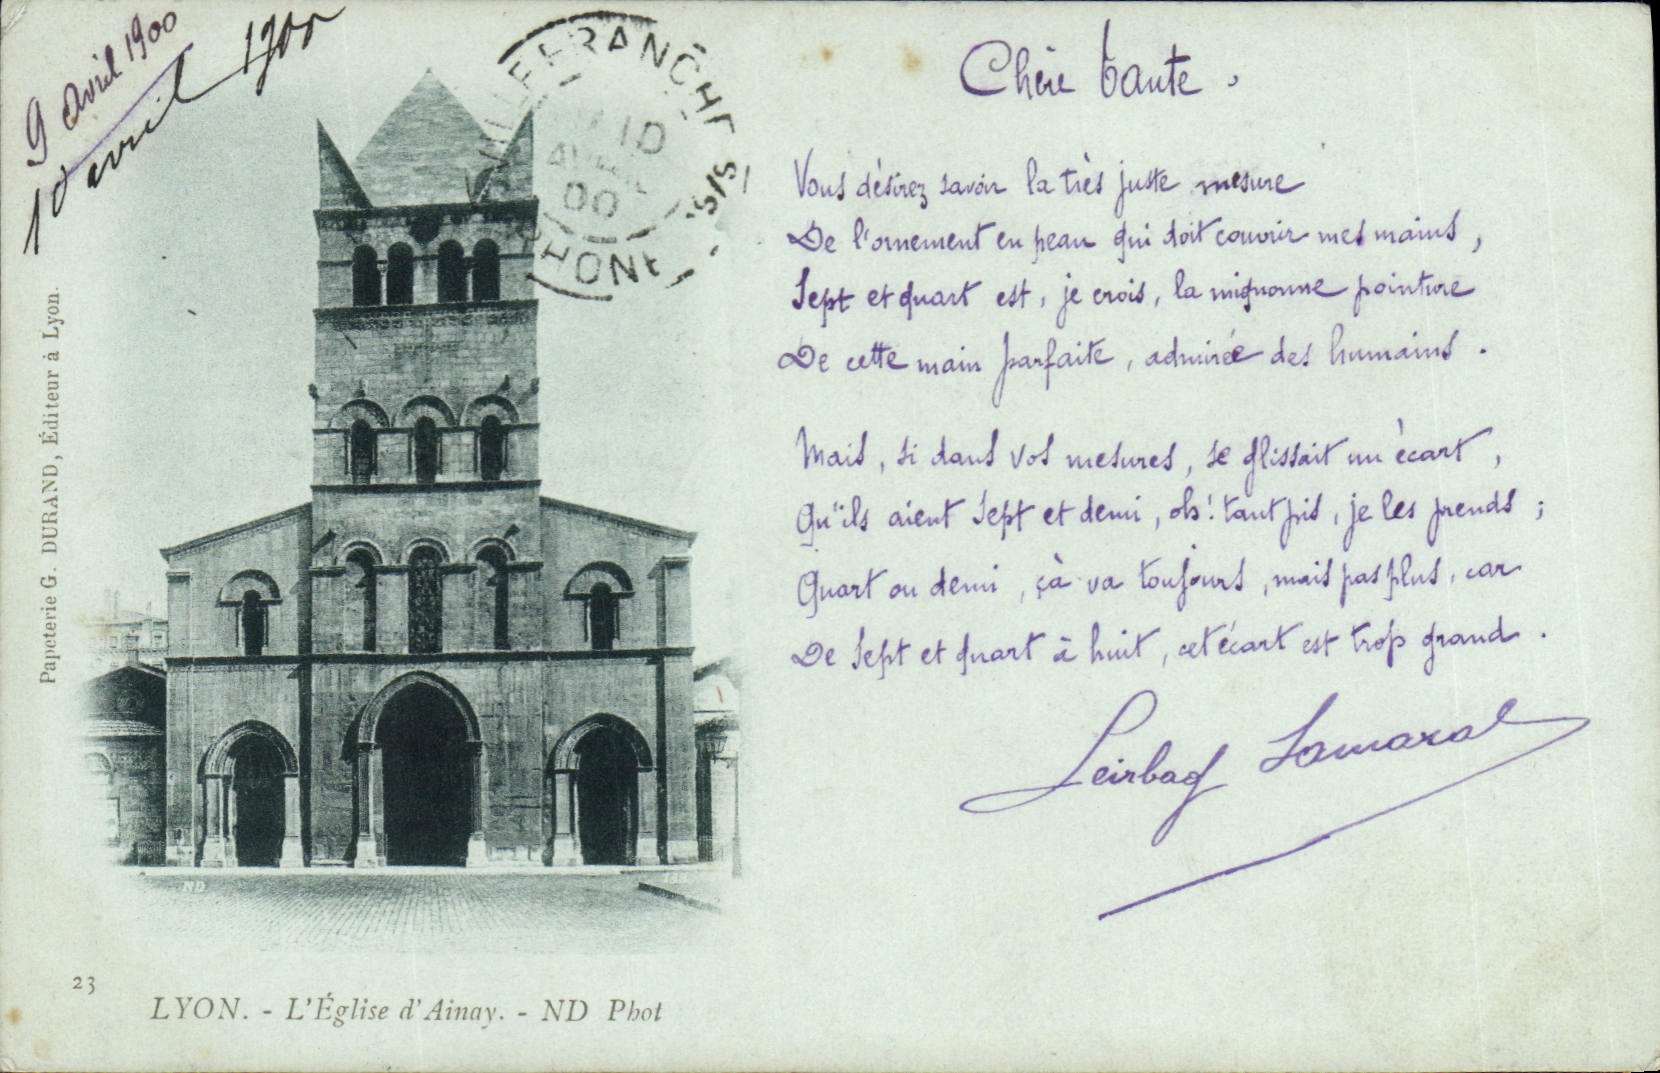 9 avril 1900
10 avril 1900
VILLEFRANCHE S/S.
10
AVRIL
00
RHONE
Papeterie G. DURAND, Éditeur à Lyon.
Chère tante,
Vous désirez savoir la très juste mesure
De l'ornement en peau qui doit couvrir mes mains,
Sept et quart est, je crois, la mignonne pointure
De cette main parfaite, admirée des humains.
Mais, si dans vos mesures, se glissait un écart,
Qu'ils aient sept et demi, oh! tant pis, je les prends;
Quart ou demi, çà va toujours, mais pas plus, car
De sept et quart à huit, cet écart est trop grand.
Leirbag Lamaral
ND
23
LYON. - L'Église d'Ainay. - ND Phot